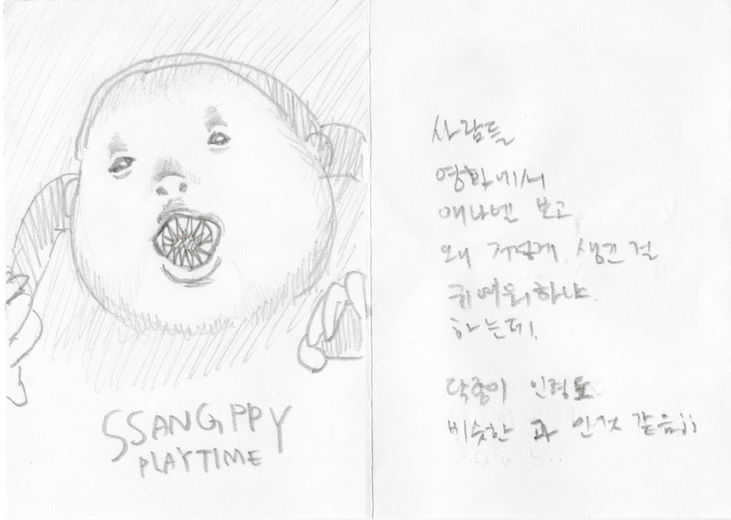 SSANGPPY
PLAYTIME
사람들
영화에서
애나벨 보고
왜 저렇게 생긴 걸
귀여워하냐
하는데,
닥종이 인형도
비슷한 과 인것 같음;;